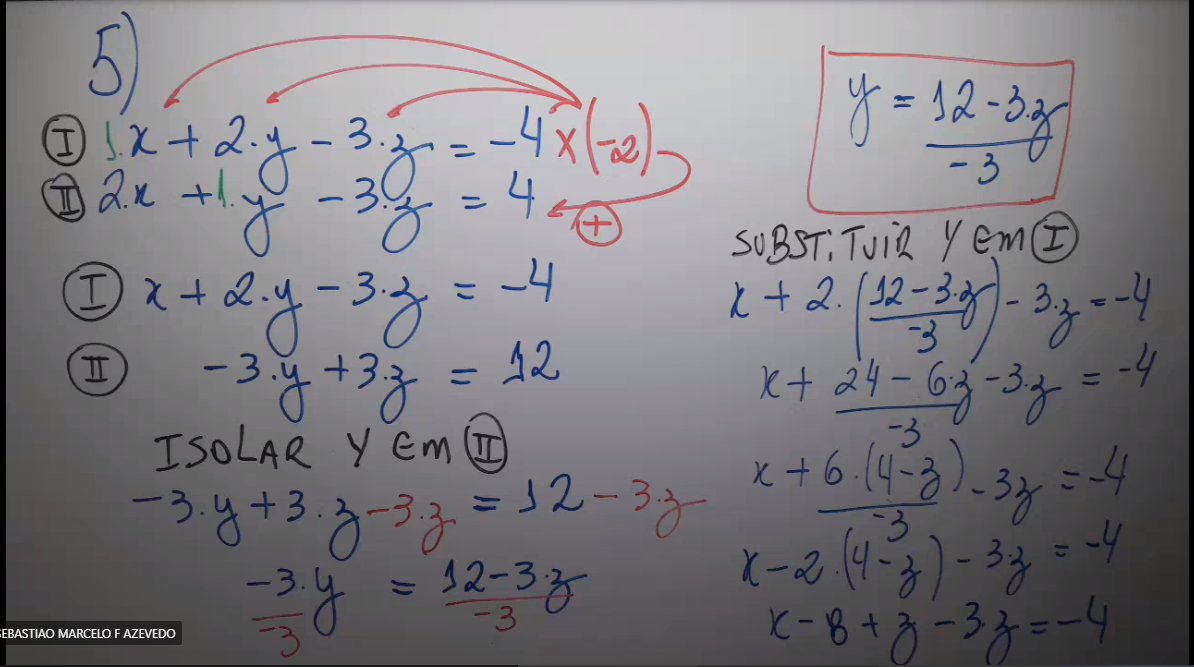 5)
I 1.x + 2.y - 3.z = -4 x(-2)
II 2.x + 1.y - 3.z = 4
+
I x + 2.y - 3.z = -4
II -3.y + 3.z = 12
ISOLAR Y EM II
-3.y + 3.z - 3.z = 12 - 3.z
-3.y/-3 = 12-3.z/-3
y = 12-3.z/-3
SUBSTITUIR Y EM I
x + 2.(12-3.z/-3) - 3.z = -4
x + 24-6.z/-3 - 3.z = -4
x + 6.(4-z)/-3 - 3z = -4
x - 2.(4-z) - 3.z = -4
x - 8 + z - 3.z = -4
SEBASTIAO MARCELO F AZEVEDO